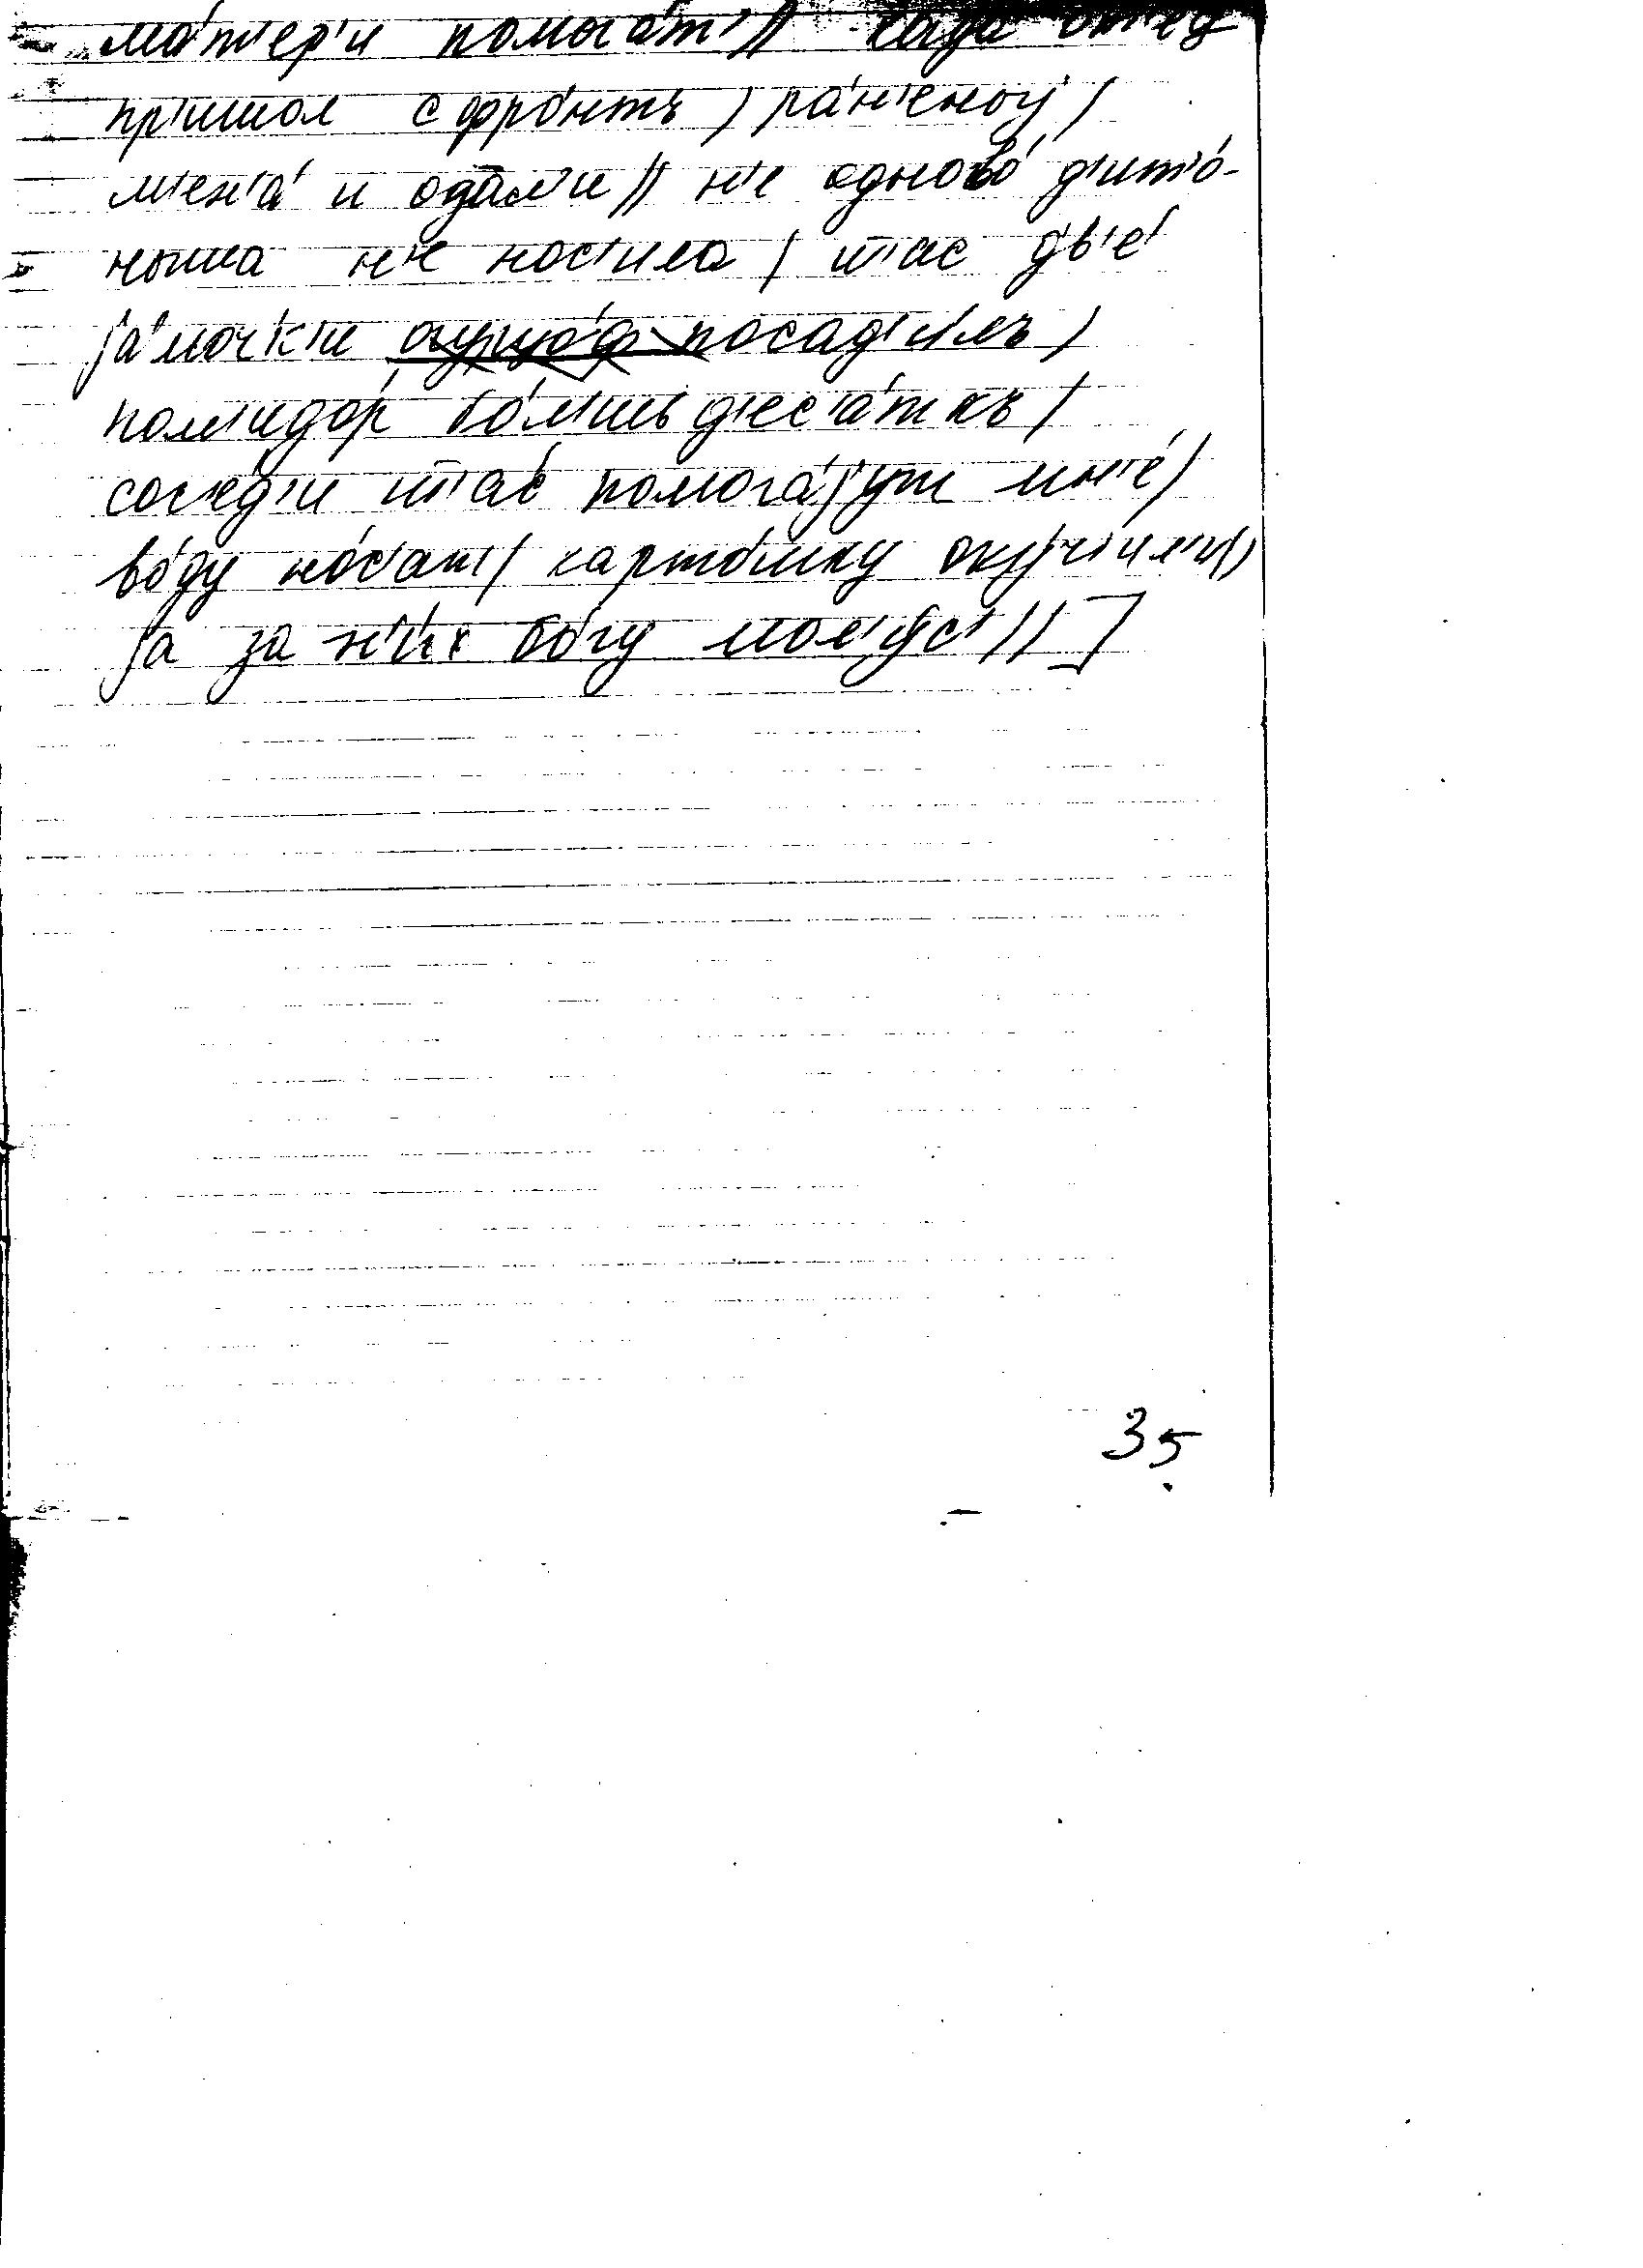 ма́т'ер'и помога́т'// када́ от'ец
пр'ишол с фро́нтъ / ра́н'еноj /
м'ен'а́ и одал'и // н'е одново́ д'ит'о́-
ныша н'е нос'ила / ш'ас дв'е
jа́моч'к'и огурцо́ф посад'и́лъ /
пом'идо́р бо́л'шь д'ес'а́ткъ /
сос'е́д'и ш'ас помога́jут мн'е́ /
во́ду но́с'ат / карто́шку окуч'ил'и /
jа за н'и́х бо́гу мол'у́с' // ]
35